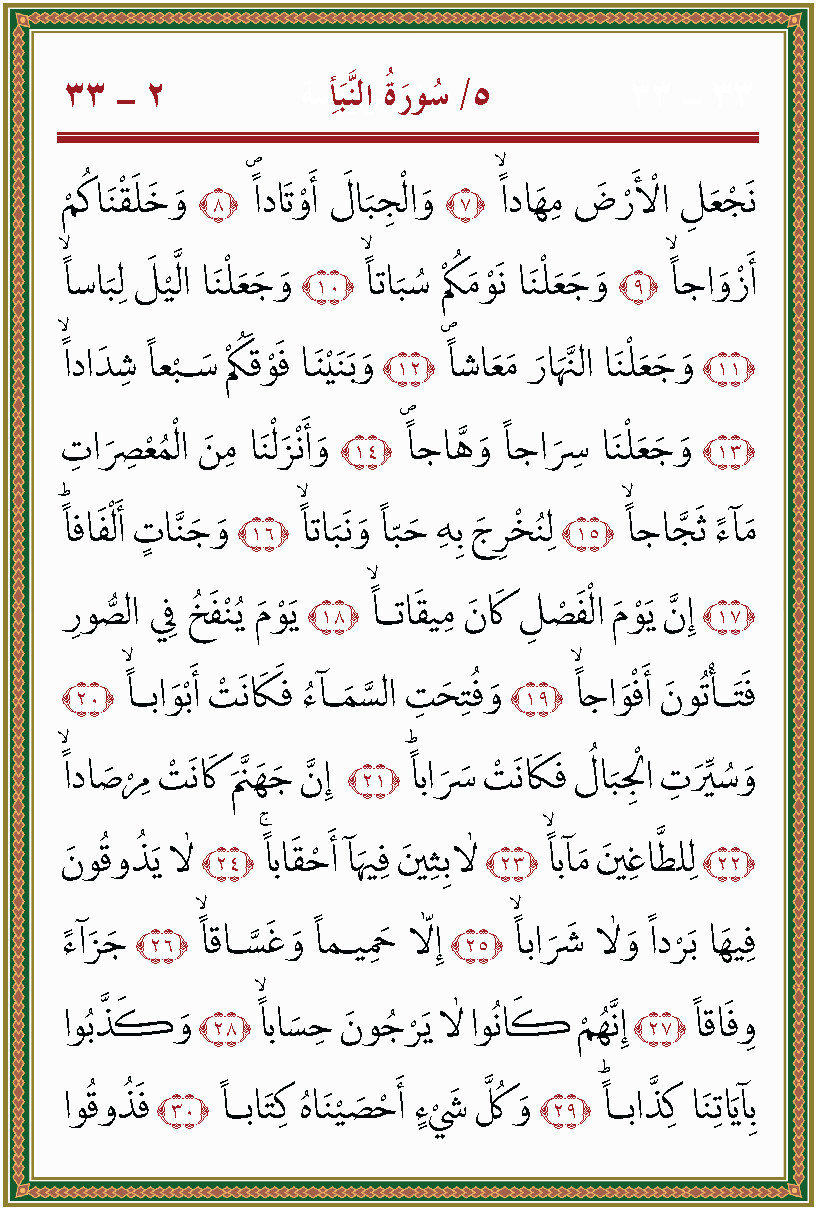 ٥/ سُورَةُ النَّبَأِ ٢ - ٣٣
نَجْعَلِ الْأَرْضَ مِهَاداًۙ ﴿٧﴾ وَالْجِبَالَ أَوْتَاداًۖ ﴿٨﴾ وَخَلَقْنَاكُمْ
أَزْوَاجاًۙ ﴿٩﴾ وَجَعَلْنَا نَوْمَكُمْ سُبَاتاًۙ ﴿١٠﴾ وَجَعَلْنَا الَّيْلَ لِبَاساًۙ
﴿١١﴾ وَجَعَلْنَا النَّهَارَ مَعَاشاًۖ ﴿١٢﴾ وَبَنَيْنَا فَوْقَكُمْ سَبْعاً شِدَاداًۙ
﴿١٣﴾ وَجَعَلْنَا سِرَاجاً وَهَّاجاًۖ ﴿١٤﴾ وَأَنْزَلْنَا مِنَ الْمُعْصِرَاتِ
مَآءً ثَجَّاجاًۙ ﴿١٥﴾ لِنُخْرِجَ بِهِ حَبّاً وَنَبَاتاًۙ ﴿١٦﴾ وَجَنَّاتٍ أَلْفَافاًۜ
﴿١٧﴾ إِنَّ يَوْمَ الْفَصْلِ كَانَ مِيقَاتاًۙ ﴿١٨﴾ يَوْمَ يُنْفَخُ فِي الصُّورِ
فَتَأْتُونَ أَفْوَاجاًۙ ﴿١٩﴾ وَفُتِحَتِ السَّمَآءُ فَكَانَتْ أَبْوَاباًۙ ﴿٢٠﴾
وَسُيِّرَتِ الْجِبَالُ فَكَانَتْ سَرَاباًۜ ﴿٢١﴾ إِنَّ جَهَنَّمَ كَانَتْ مِرْصَاداًۙ
﴿٢٢﴾ لِلطَّاغِينَ مَآباًۙ ﴿٢٣﴾ لَابِثِينَ فِيهَآ أَحْقَاباًۚ ﴿٢٤﴾ لَا يَذُوقُونَ
فِيهَا بَرْداً وَلَا شَرَاباًۙ ﴿٢٥﴾ إِلَّا حَمِيماً وَغَسَّاقاًۙ ﴿٢٦﴾ جَزَآءً
وِفَاقاً ﴿٢٧﴾ إِنَّهُمْ كَانُوا لَا يَرْجُونَ حِسَاباًۙ ﴿٢٨﴾ وَكَذَّبُوا
بِآيَاتِنَا كِذَّاباًۜ ﴿٢٩﴾ وَكُلَّ شَيْءٍ أَحْصَيْنَاهُ كِتَاباً ﴿٣٠﴾ فَذُوقُوا